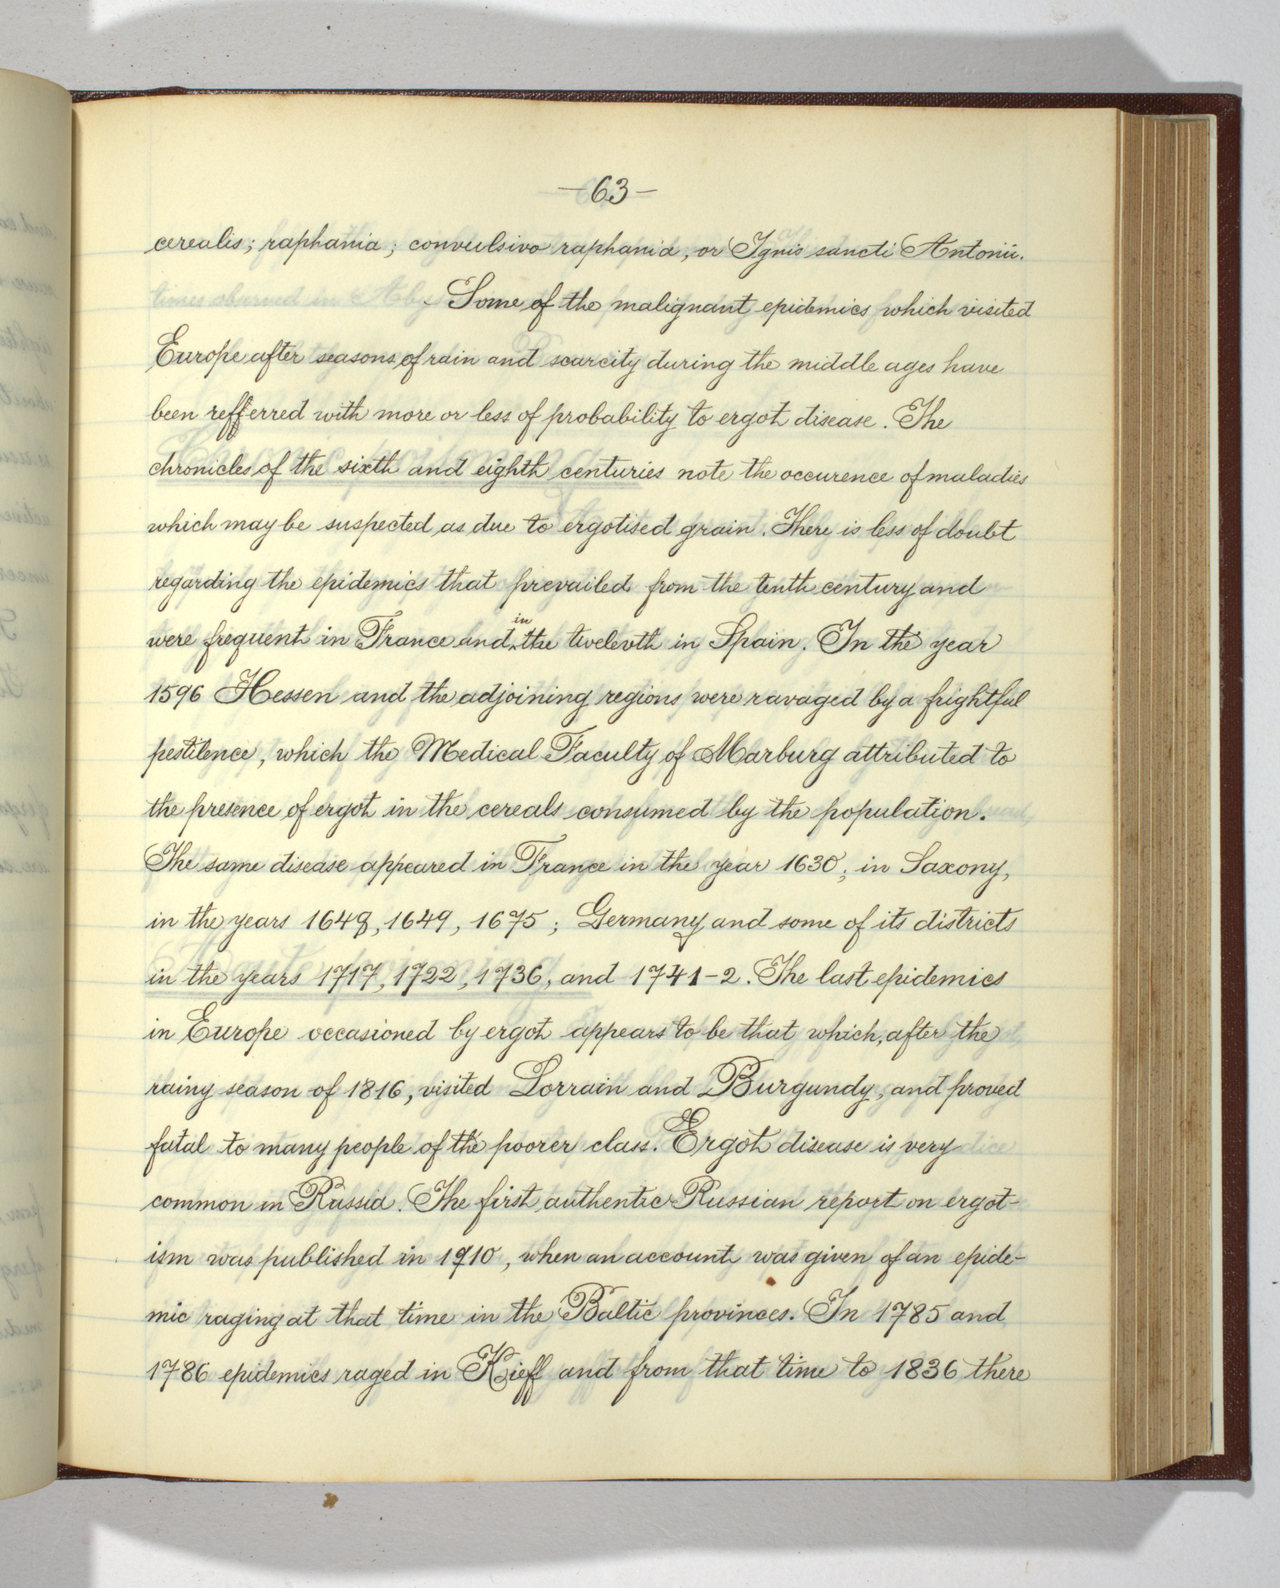 —63—
cerealis; raphania; convulsivo raphania, or Ignis sancti Antonii.
Some of the malignant epidemics which visited
Europe after seasons of rain and scarcity during the middle ages have
been refferred with more or less of probability to ergot disease. The
chronicles of the sixth and eighth centuries note the occurence of maladies
which may be suspected as due to ergotised grain. There is less of doubt
regarding the epidemics that prevailed from the tenth century and
in
were frequent in France and the twelevth in Spain. In the year
1596 Hessen and the adjoining regions were ravaged by a frightful
pestilence, which the Medical Faculty of Marburg attributed to
the presence of ergot in the cereals consumed by the population.
The same disease appeared in France in the year 1630; in Saxony,
in the years 1648, 1649, 1675; Germany and some of its districts
in the years 1717, 1722, 1736, and 1741-2. The last epidemics
in Europe occasioned by ergot appears to be that which, after the
rainy season of 1816, visited Lorrain and Burgundy, and proved
fatal to many people of the poorer class. Ergot disease is very
common in Russia. The first authentic Russian report on ergot-
ism was published in 1710, when an account was given of an epide-
mic raging at that time in the Baltic provinces. In 1785 and
1786 epidemics raged in Kieff and from that time to 1836 there